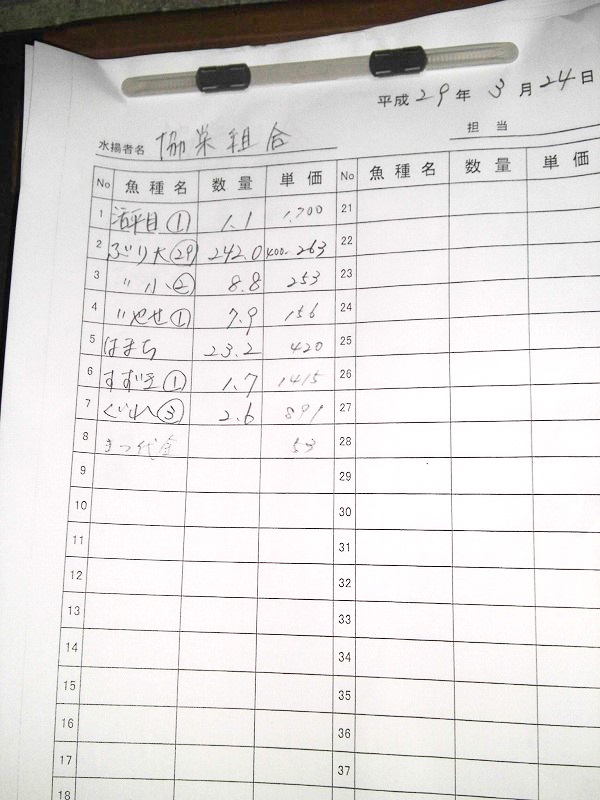 平成 29 年 3 月 24 日
担当
水揚者名 協栄組合
No 魚種名 数量 単価 No 魚種名 数量 単価
1 活平目① 1.1 1,700 21
2 ぶり大㉙ 242.0 400-263 22
3 〃小② 8.8 253 23
4 〃やせ① 7.9 156 24
5 はまち 23.2 420 25
6 すずき① 1.7 1415 26
7 ぐれ③ 2.6 891 27
8 代金 53 28
9 29
10 30
11 31
12 32
13 33
14 34
15 35
16 36
17 37
18